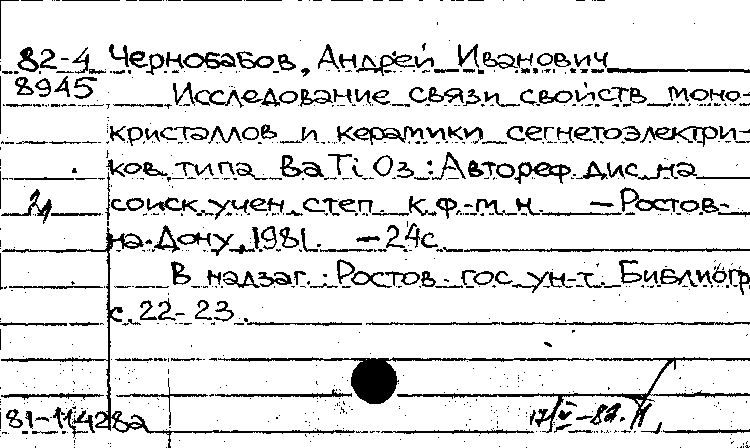 82-4 Чернобабов, Андрей Иванович
8945 Исследование связи свойств моно-
кристаллов и керамики сегнетоэлектри-
ков типа BaTiO3 : Автореф. дис. на
21 соиск. учен. степ. к.ф.-м.н. — Ростов-
на-Дону, 1981. — 24с.
В надзаг.: Ростов. гос. ун-т. Библиогр.
с. 22-23.
81-11428а 17/V-82.